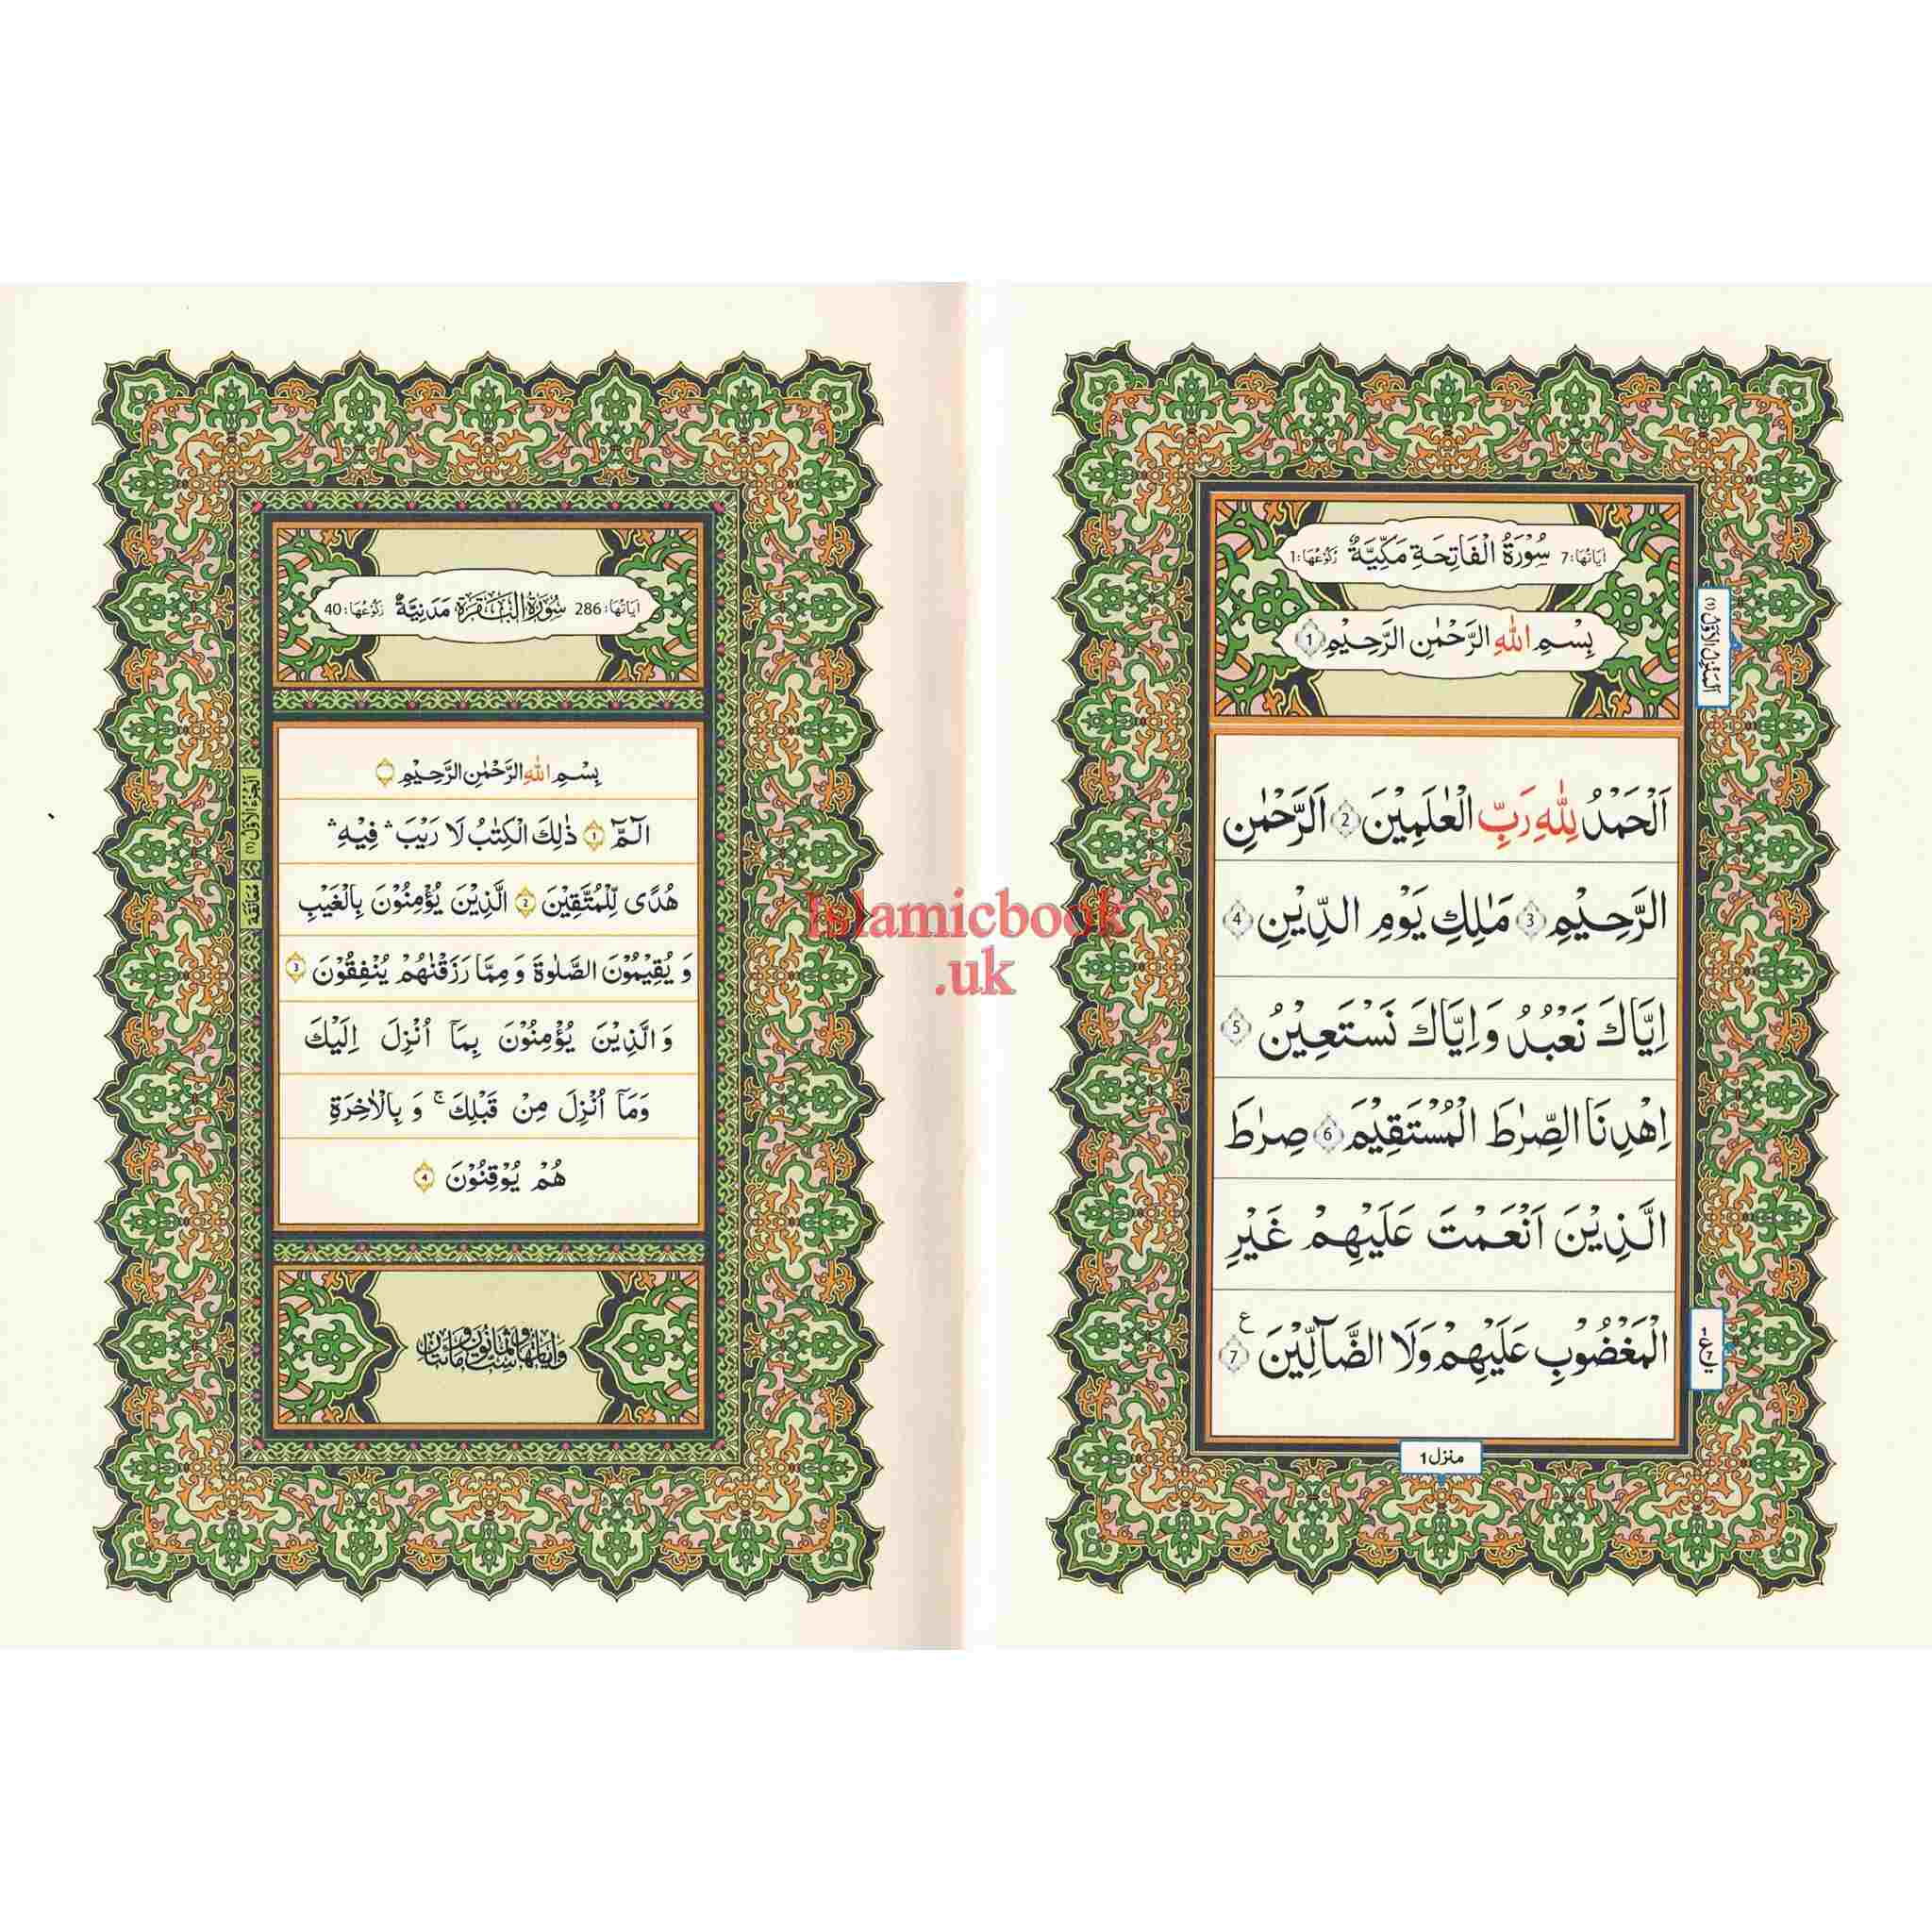 اٰيَاتُهَا: 7 سُوْرَةُ الْفَاتِحَةِ مَكِّيَّةٌ رُكُوْعُهَا: 1
بِسْمِ اللهِ الرَّحْمٰنِ الرَّحِيْمِ 1
اَلْحَمْدُ لِلّٰهِ رَبِّ الْعٰلَمِيْنَ 2 اَلرَّحْمٰنِ
الرَّحِيْمِ 3 مٰلِكِ يَوْمِ الدِّيْنِ 4
اِيَّاكَ نَعْبُدُ وَاِيَّاكَ نَسْتَعِيْنُ 5
اِهْدِنَا الصِّرٰطَ الْمُسْتَقِيْمَ 6 صِرٰطَ
الَّذِيْنَ اَنْعَمْتَ عَلَيْهِمْ غَيْرِ
الْمَغْضُوْبِ عَلَيْهِمْ وَلَا الضَّآلِّيْنَ ع 7
اَلْمَنْزِلُ الْاَوَّلُ (1)
منزل 1
اٰيَاتُهَا: 286 سُوْرَةُ الْبَقَرَةِ مَدَنِيَّةٌ رُكُوْعُهَا: 40
بِسْمِ اللهِ الرَّحْمٰنِ الرَّحِيْمِ
الٓمّٓ 1 ذٰلِكَ الْكِتٰبُ لَا رَيْبَ ۛ فِيْهِ ۛ
هُدًى لِّلْمُتَّقِيْنَ 2 الَّذِيْنَ يُؤْمِنُوْنَ بِالْغَيْبِ
وَ يُقِيْمُوْنَ الصَّلٰوةَ وَ مِمَّا رَزَقْنٰهُمْ يُنْفِقُوْنَ 3
وَالَّذِيْنَ يُؤْمِنُوْنَ بِمَآ اُنْزِلَ اِلَيْكَ
وَمَآ اُنْزِلَ مِنْ قَبْلِكَ ۚ وَ بِالْاٰخِرَةِ
هُمْ يُوْقِنُوْنَ 4
اَلْجُزْءُ الْاَوَّلُ (1)
معانقه
Islamicbook
.uk